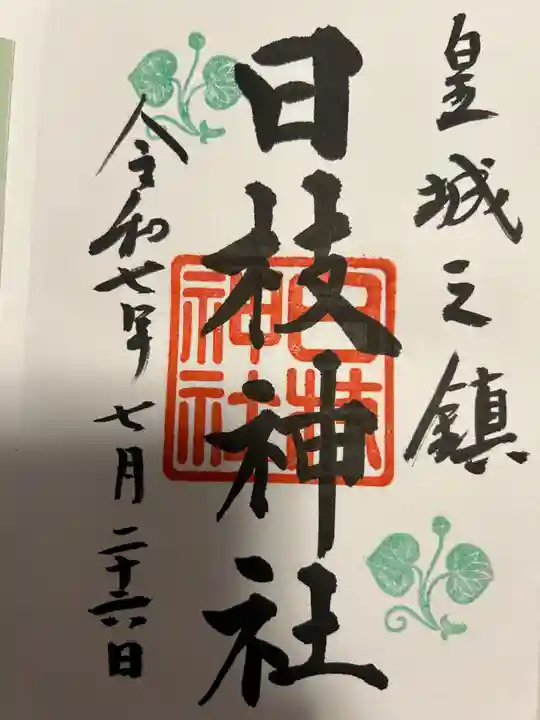 皇城之鎮
日枝神社
日枝神社
令和七年 七月二十六日